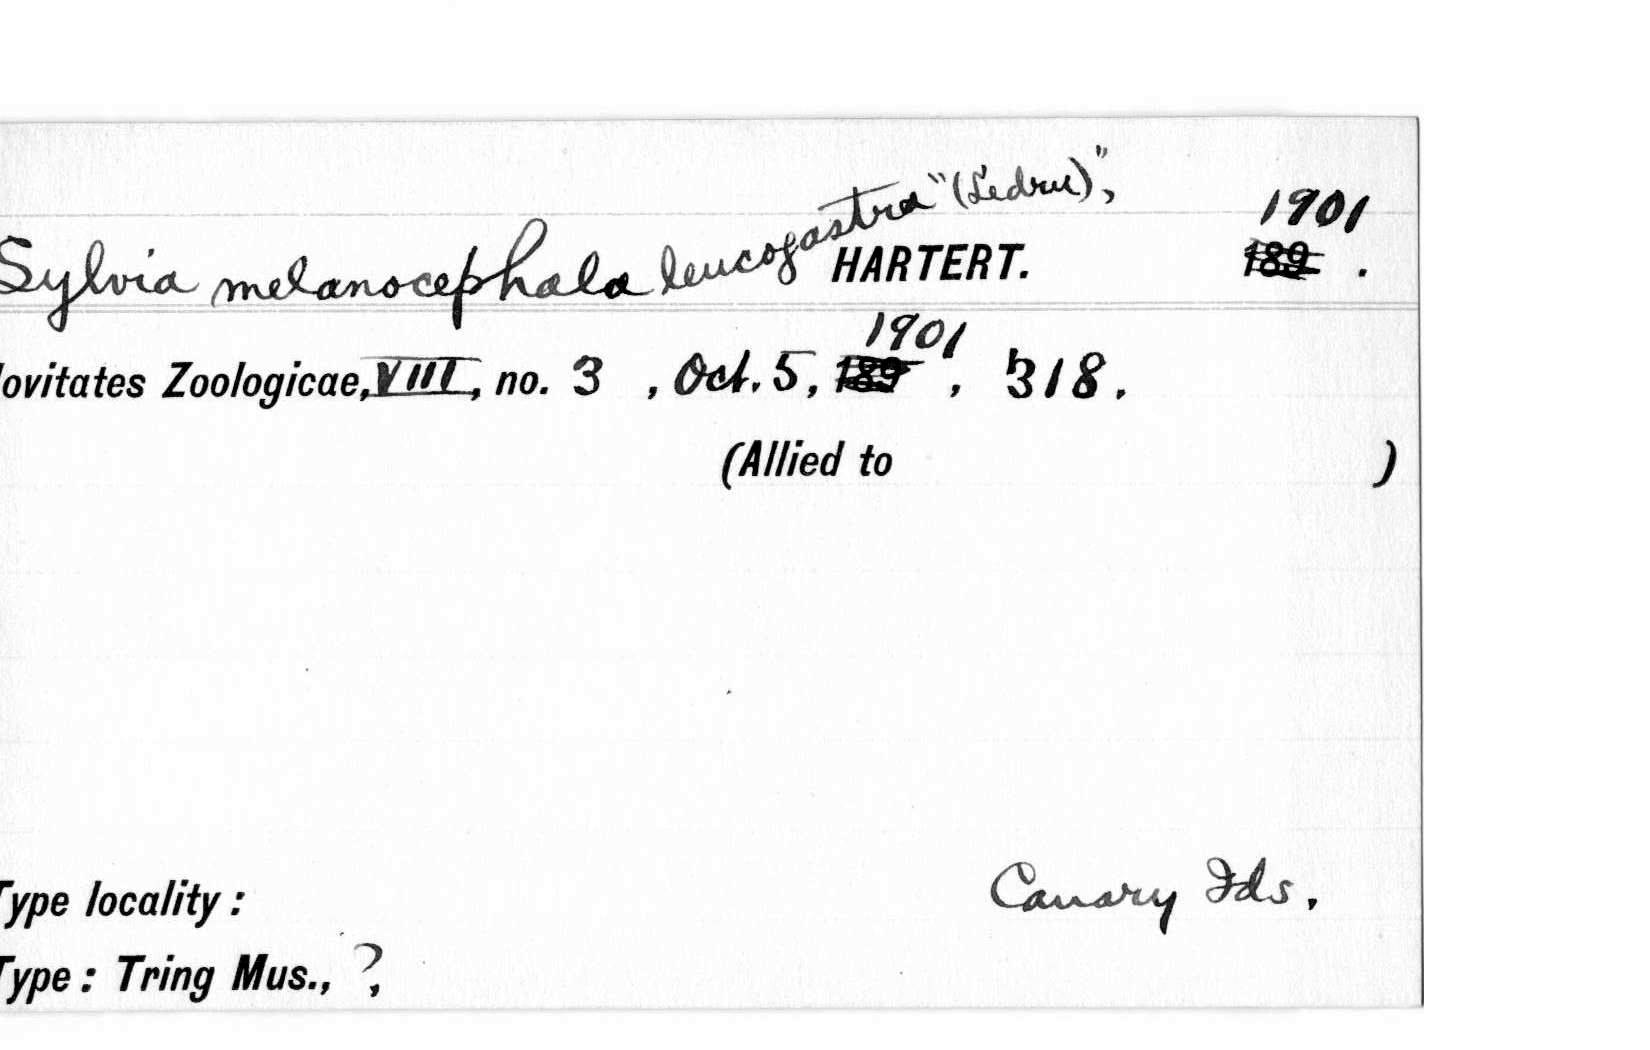 Sylvia melanocephala leucogastra "(Ledru)", HARTERT. 1901 189 .
ovitates Zoologicae, VIII, no. 3 , Oct. 5, 1901 189 , 318.
(Allied to )
Type locality : Canary Ids.
Type : Tring Mus., ?